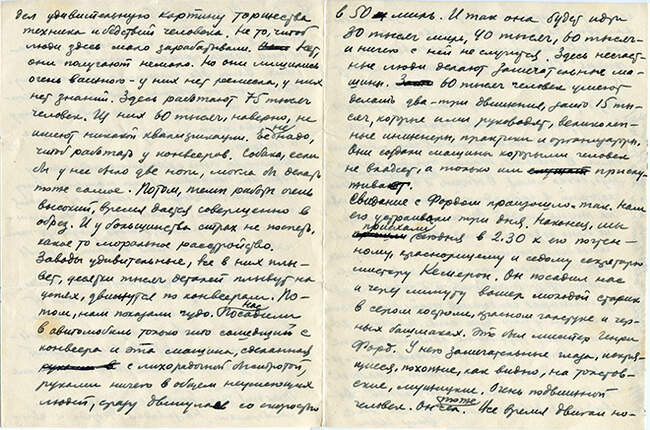 дел удивительную картину торжества
техники и бедствий человека. Не то, чтоб
люди здесь мало зарабатывали. Нет,
они получают немало. Но они лишились
очень важного – у них нет ремесла, у них
нет знаний. Здесь работают 75 тысяч
человек. Из них 60 тысяч, наверно, не
имеют никакой квалификации. Её не надо,
чтоб работать у конвейеров. Собака, если
б у нее было две ноги, могла бы делать
тоже самое. Потом, темп работы очень
высокий, время дается совершенно в
обрез. И у большинства страх не поспеть,
какое то моральное расстройство.
Заводы удивительные, все в них плы-
вет, десятки тысяч деталей плывут на
цепях, движутся по конвеерам. По-
том, нам показали чудо. Посадили нас
в автомобиль только что сошедший с
конвеера и эта машина, сделанная
с лихорадочной быстротой,
руками ничего в общем неумеющих
людей, сразу двинулась со скоростью
в 50 миль. И так она будет идти
30 тысяч миль, 40 тысяч, 60 тысяч –
и ничего с ней не случится. Здесь несчаст-
ные люди делают замечательные ма-
шины. 60 тысяч человек умеют
делать два-три движения, зато 15 ты-
сяч, которые ими руководят, великолеп-
ные инженеры, практики и организаторы.
Они создали машины которыми человек
не владеет, а только им прислу-
живает.
Свидание с Фордом произошло так. Нам
его устраивали три дня. Наконец, мы
приехали сегодня в 2.30 к его почтен-
ному, красноречивому и седому секретарю
мистеру Кемерон. Он посадил нас
и через минуту вошел молодой старик
в сером костюме, красном галстуке и чер-
ных башмаках. Это был мистер Генри
Форд. У него замечательные глаза, искря-
щиеся, похожие, как видно, на толстов-
ские, мужицкие. Очень подвижной
человек. Он сел тоже. Все время двигал но-